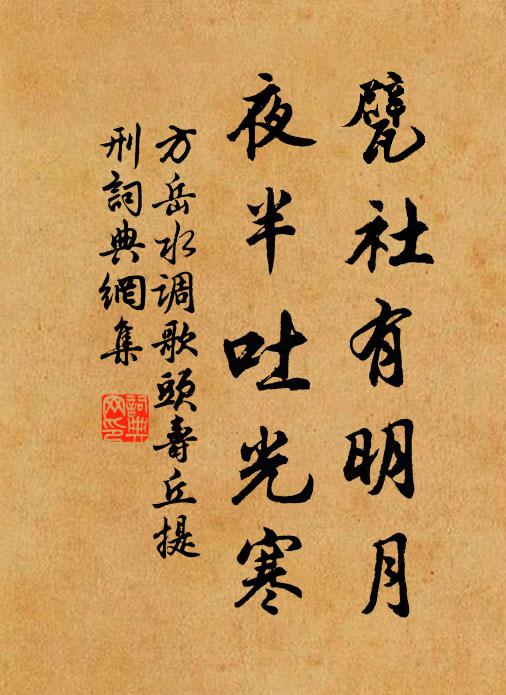 甓社有明月
夜半吐光寒
方岳水调歌頭壽丘提
刑詞典網集
詞典
网印